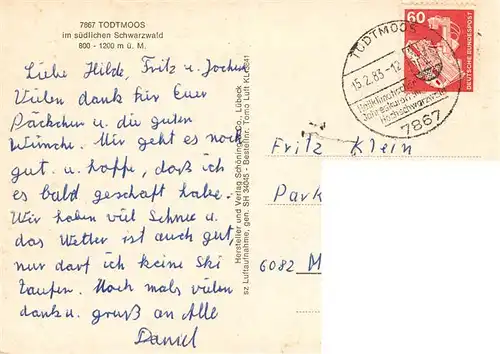 7867 TODTMOOS
im südlichen Schwarzwald
800 - 1200 m ü. M.
Liebe Hilde, Fritz u. Jochen
Vielen dank für Euer
Päckchen u. die guten
Wünsche. Mir geht es noch
gut. u. hoffe, daß ich
es bald geschaft habe.
Wir haben viel Schnee u.
das Wetter ist auch gut
nur darf ich keine Ski
laufen. Noch mals vielen
dank u. gruß an Alle
Daniel
Hersteller und Verlag Schöning & Co., Lübeck
sz Luftaufnahme, gen. SH 34045 - Bestellnr. Tomo Luft KL
TODTMOOS
15.2.83-12
Heilklimatischer
Jahreskurort im
Hochschwarzwald
7867
60
DEUTSCHE BUNDESPOST
Fritz Klein
Park
6082 M